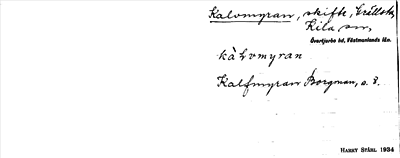 Kalvmyran, skifte, Grällsta,
Kila sn,
Övertjurbo hd, Västmanlands län.
kàlvmyran
Kalfmyran Borgman, s. 8.
HARRY STÅHL 1934